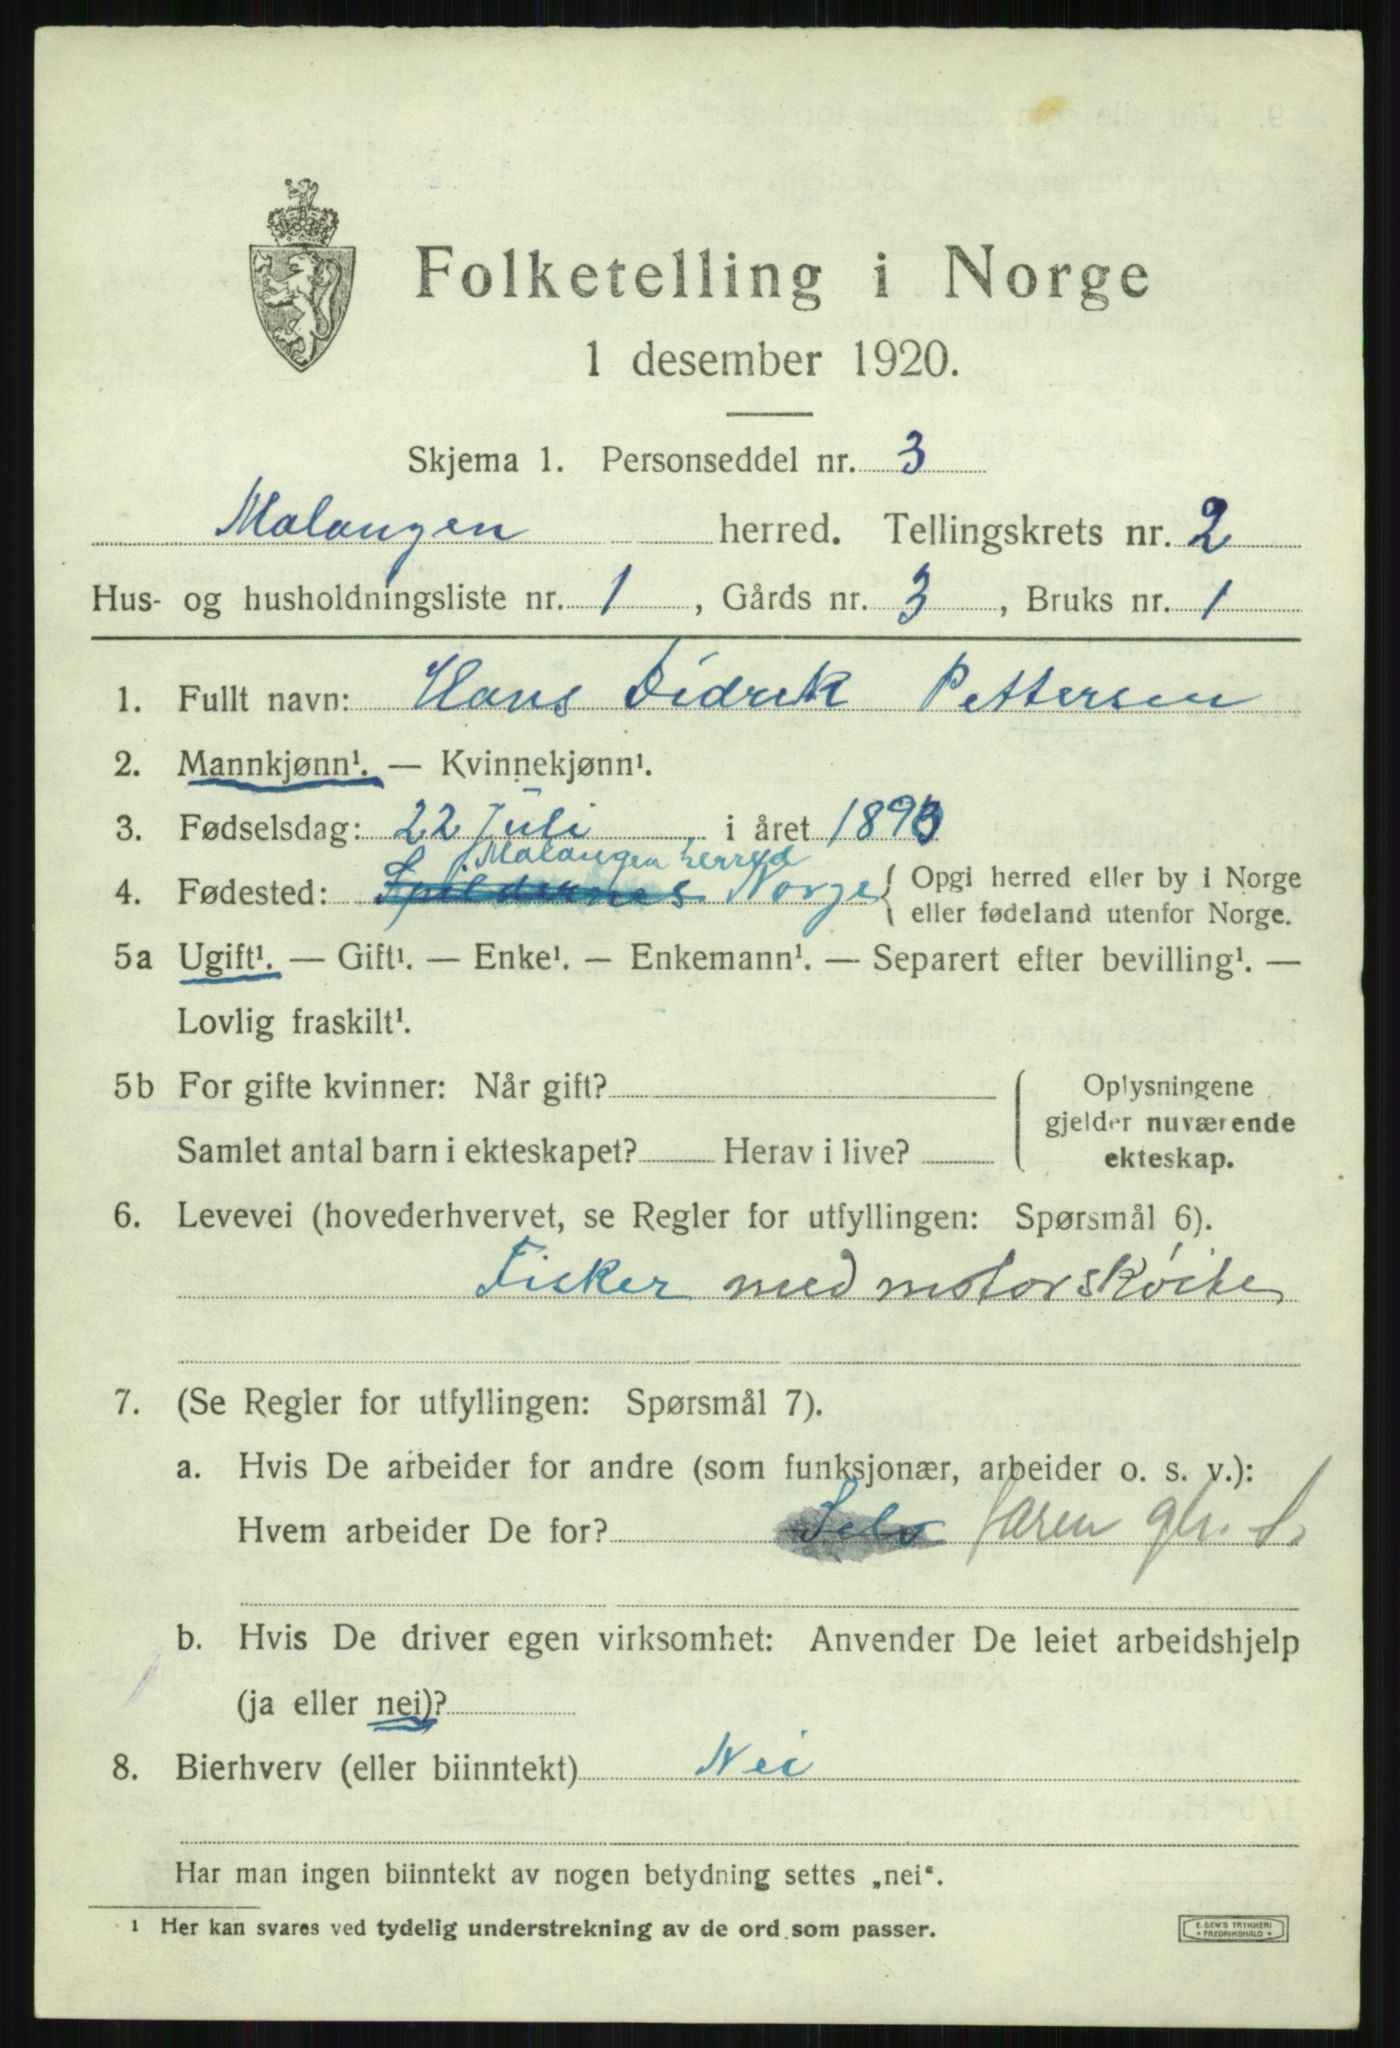 Folketelling i Norge
1 desember 1920.
Skjema 1. Personseddel nr. 3
Malangen herred. Tellingskrets nr. 2
Hus- og husholdningsliste nr. 1, Gårds nr. 3, Bruks nr. 1
1. Fullt navn: Hans Didrik Pettersen
2. Mannkjønn¹. — Kvinnekjønn¹.
3. Fødselsdag: 22 Juli i året 1890
Malangen herred
4. Fødested: Spildernes Norge { Opgi herred eller by i Norge
eller fødeland utenfor Norge.
5a Ugift¹. — Gift¹. — Enke¹. — Enkemann¹. — Separert efter bevilling¹. —
Lovlig fraskilt¹.
5b For gifte kvinner: Når gift? Oplysningene
gjelder nuværende
Samlet antal barn i ekteskapet? Herav i live? ekteskap.
6. Levevei (hovederhvervet, se Regler for utfyllingen: Spørsmål 6).
Fisker med motorskøite
7. (Se Regler for utfyllingen: Spørsmål 7).
a. Hvis De arbeider for andre (som funksjonær, arbeider o. s. v.):
Hvem arbeider De for? Selv faren
b. Hvis De driver egen virksomhet: Anvender De leiet arbeidshjelp
(ja eller nei)?
8. Bierhverv (eller biinntekt) Nei
Har man ingen biinntekt av nogen betydning settes „nei“.
1 Her kan svares ved tydelig understrekning av de ord som passer.
E. SEM'S TRYKKERI
* FREDRIKSHALD *